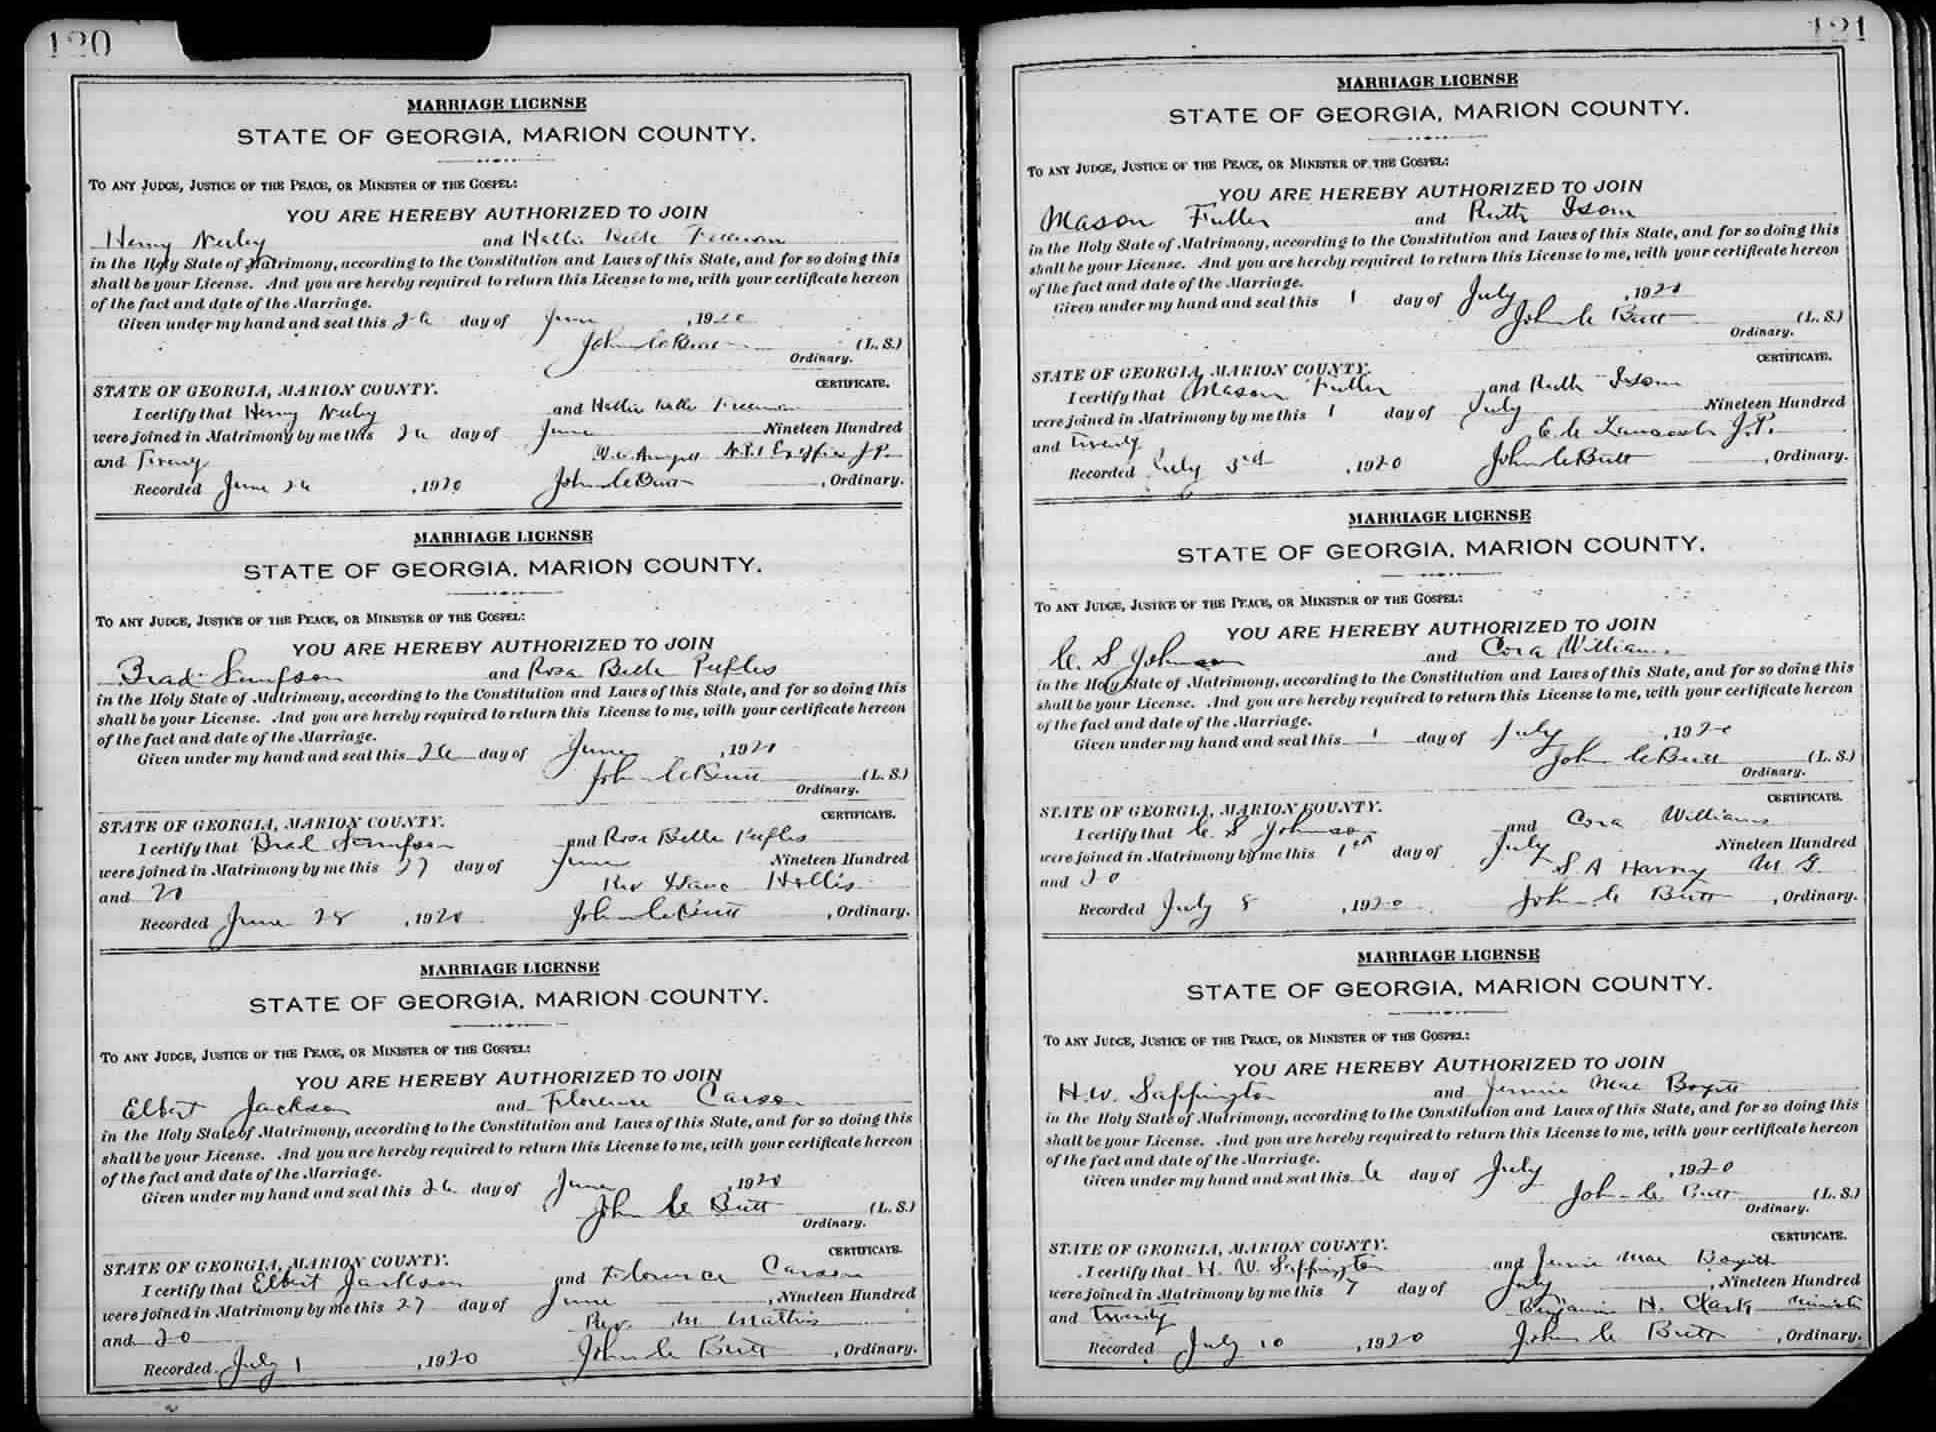 120
MARRIAGE LICENSE
STATE OF GEORGIA, MARION COUNTY.
TO ANY JUDGE, JUSTICE OF THE PEACE, OR MINISTER OF THE GOSPEL:
YOU ARE HEREBY AUTHORIZED TO JOIN
Henry and Hattie Belle Freeman
in the Holy State of Matrimony, according to the Constitution and Laws of this State, and for so doing this
shall be your License. And you are hereby required to return this License to me, with your certificate hereon
of the fact and date of the Marriage.
Given under my hand and seal this 26 day of June, 1920
John C Butt (L. S.)
Ordinary.
CERTIFICATE.
STATE OF GEORGIA, MARION COUNTY.
I certify that Henry and Hattie Belle Freeman
were joined in Matrimony by me this 26 day of June Nineteen Hundred
and Twenty
N.P. & Ex officio J.P.
Recorded June 26, 1920 John C Butt, Ordinary.
MARRIAGE LICENSE
STATE OF GEORGIA, MARION COUNTY.
TO ANY JUDGE, JUSTICE OF THE PEACE, OR MINISTER OF THE GOSPEL:
YOU ARE HEREBY AUTHORIZED TO JOIN
Brad Simpson and Rosa Belle Peeples
in the Holy State of Matrimony, according to the Constitution and Laws of this State, and for so doing this
shall be your License. And you are hereby required to return this License to me, with your certificate hereon
of the fact and date of the Marriage.
Given under my hand and seal this 26 day of June, 1920
John C Butt (L. S.)
Ordinary.
CERTIFICATE.
STATE OF GEORGIA, MARION COUNTY.
I certify that Brad Simpson and Rosa Belle Peeples
were joined in Matrimony by me this 27 day of June Nineteen Hundred
and 20 Rev Hollis
Recorded June 28, 1920 John C Butt, Ordinary.
MARRIAGE LICENSE
STATE OF GEORGIA, MARION COUNTY.
TO ANY JUDGE, JUSTICE OF THE PEACE, OR MINISTER OF THE GOSPEL:
YOU ARE HEREBY AUTHORIZED TO JOIN
Elbert Jackson and Florence Carson
in the Holy State of Matrimony, according to the Constitution and Laws of this State, and for so doing this
shall be your License. And you are hereby required to return this License to me, with your certificate hereon
of the fact and date of the Marriage.
Given under my hand and seal this 26 day of June, 1920
John C Butt (L. S.)
Ordinary.
CERTIFICATE.
STATE OF GEORGIA, MARION COUNTY.
I certify that Elbert Jackson and Florence Carson
were joined in Matrimony by me this 27 day of June, Nineteen Hundred
and 20 Rev. M Mathis
Recorded July 1, 1920 John C Butt, Ordinary.
121
MARRIAGE LICENSE
STATE OF GEORGIA, MARION COUNTY.
TO ANY JUDGE, JUSTICE OF THE PEACE, OR MINISTER OF THE GOSPEL:
YOU ARE HEREBY AUTHORIZED TO JOIN
Mason Fuller and Ruth Isom
in the Holy State of Matrimony, according to the Constitution and Laws of this State, and for so doing this
shall be your License. And you are hereby required to return this License to me, with your certificate hereon
of the fact and date of the Marriage.
Given under my hand and seal this 1 day of July, 1920
John C Butt (L. S.)
Ordinary.
CERTIFICATE.
STATE OF GEORGIA, MARION COUNTY.
I certify that Mason Fuller and Ruth Isom
were joined in Matrimony by me this 1 day of July Nineteen Hundred
and Twenty E. C Lancaster J.P.
Recorded July 3rd, 1920 John C Butt, Ordinary.
MARRIAGE LICENSE
STATE OF GEORGIA, MARION COUNTY.
TO ANY JUDGE, JUSTICE OF THE PEACE, OR MINISTER OF THE GOSPEL:
YOU ARE HEREBY AUTHORIZED TO JOIN
C. S Johnson and Cora Williams
in the Holy State of Matrimony, according to the Constitution and Laws of this State, and for so doing this
shall be your License. And you are hereby required to return this License to me, with your certificate hereon
of the fact and date of the Marriage.
Given under my hand and seal this 1 day of July, 1920
John C Butt (L. S.)
Ordinary.
CERTIFICATE.
STATE OF GEORGIA, MARION COUNTY.
I certify that C. S Johnson and Cora Williams
were joined in Matrimony by me this 1st day of July Nineteen Hundred
and 20 S A Harvey M G.
Recorded July 8, 1920 John C Butt, Ordinary.
MARRIAGE LICENSE
STATE OF GEORGIA, MARION COUNTY.
TO ANY JUDGE, JUSTICE OF THE PEACE, OR MINISTER OF THE GOSPEL:
YOU ARE HEREBY AUTHORIZED TO JOIN
H. W. Sappington and Jennie Mae Boyett
in the Holy State of Matrimony, according to the Constitution and Laws of this State, and for so doing this
shall be your License. And you are hereby required to return this License to me, with your certificate hereon
of the fact and date of the Marriage.
Given under my hand and seal this 6 day of July, 1920
John C. Butt (L. S.)
Ordinary.
CERTIFICATE.
STATE OF GEORGIA, MARION COUNTY.
I certify that H. W. Sappington and Jennie Mae Boyett
were joined in Matrimony by me this 7 day of July, Nineteen Hundred
and Twenty Benjamin H. Clark Minister
Recorded July 10, 1920 John C Butt, Ordinary.